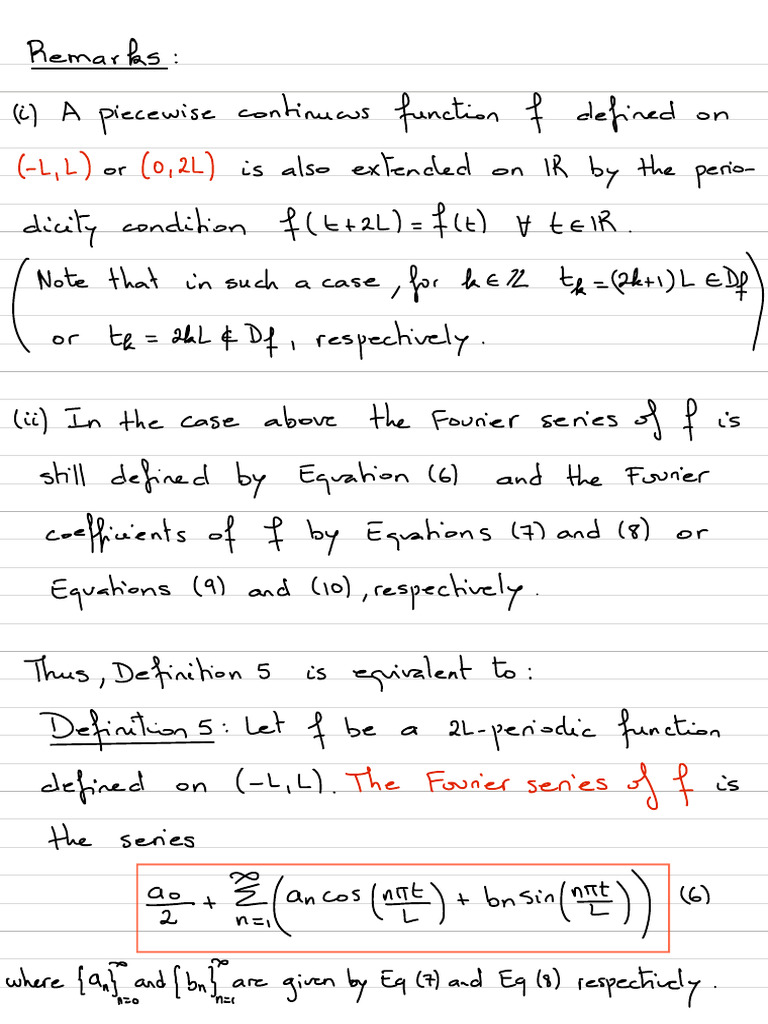 Remarks:
(i) A piecewise continuous function f defined on
(-L,L) or (0,2L) is also extended on IR by the perio-
dicity condition f(t+2L)=f(t) ∀ t∈IR.
(Note that in such a case, for k∈ℤ t_k=(2k+1)L ∈Df
or t_k = 2kL ∉ Df, respectively.)
(ii) In the case above the Fourier series of f is
still defined by Equation (6) and the Fourier
coefficients of f by Equations (7) and (8) or
Equations (9) and (10), respectively.
Thus, Definition 5 is equivalent to:
Definition 5: Let f be a 2L-periodic function
defined on (-L,L). The Fourier series of f is
the series
a_0/2 + ∑_{n=1}^∞ (a_n cos(nπt/L) + b_n sin(nπt/L)) (6)
where {a_n}_{n=0}^∞ and {b_n}_{n=1}^∞ are given by Eq (7) and Eq (8) respectively.